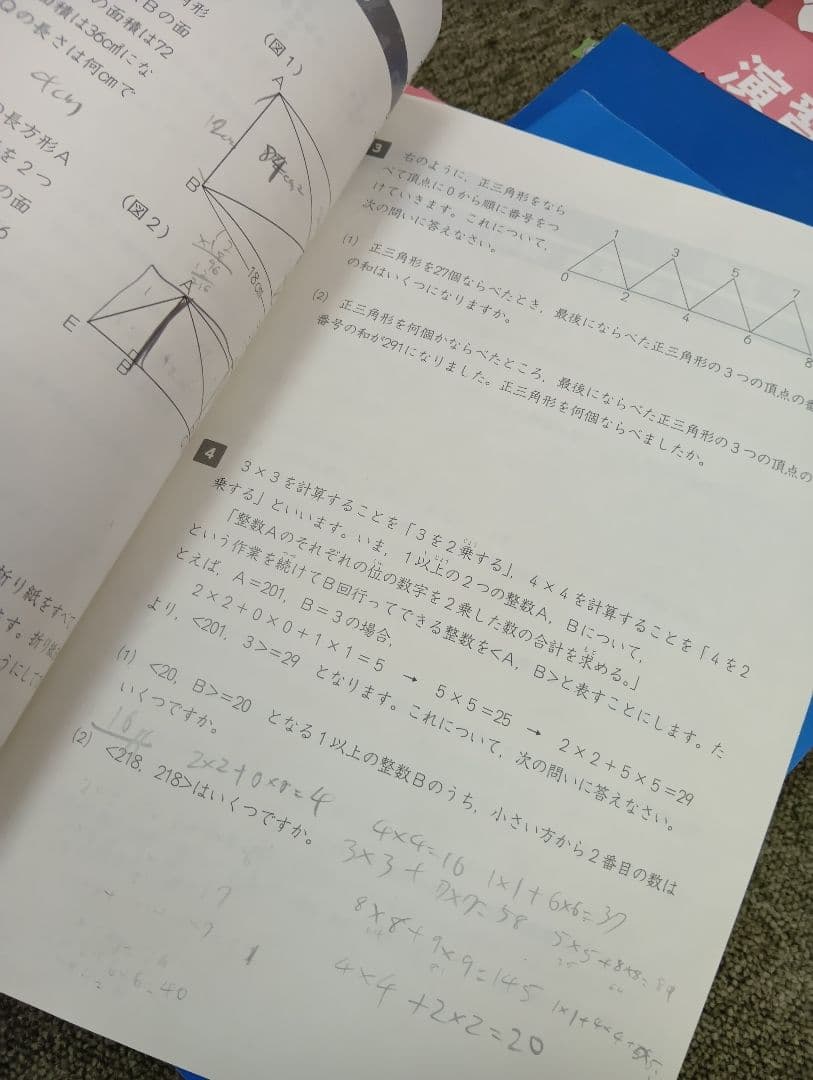 の面積は72
積は36cm²にな
Qの長さは何cmで
4cm
の長方形A
を2つ
の面
(図1)
A
12cm
84cm²
B
18cm
(図2)
A
E
B
折り紙をすべて
3
右のように、正三角形をなら
べて頂点に0から順に番号をつ
けていきます。これについて、
次の問いに答えなさい。
0 1 2 3 4 5 6 7 8
(1) 正三角形を27個ならべたとき、最後にならべた正三角形の3つの頂点の番
の和はいくつになりますか。
(2) 正三角形を何個かならべたところ、最後にならべた正三角形の3つの頂点の
番号の和が291になりました。正三角形を何個ならべましたか。
4
3×3を計算することを「3を2乗する」、4×4を計算することを「4を2
乗する」といいます。いま、1以上の2つの整数A、Bについて、
「整数Aのそれぞれの位の数字を2乗した数の合計を求める。」
という作業を続けてB回行ってできる整数を<A、B>と表すことにします。た
とえば、A=201、B=3の場合、
2×2+0×0+1×1=5 → 5×5=25 → 2×2+5×5=29
より、<201、3>=29 となります。これについて、次の問いに答えなさい。
(1) <20、B>=20 となる1以上の整数Bのうち、小さい方から2番目の数は
いくつですか。
16
(2) <218、218>はいくつですか。
2×2+0×0=4
4×4=16 1×1+6×6=37
3×3+7×7=58 5×5+8×8=89
8×8+9×9=145 1×1+4×4+5×5
4×4+2×2=20